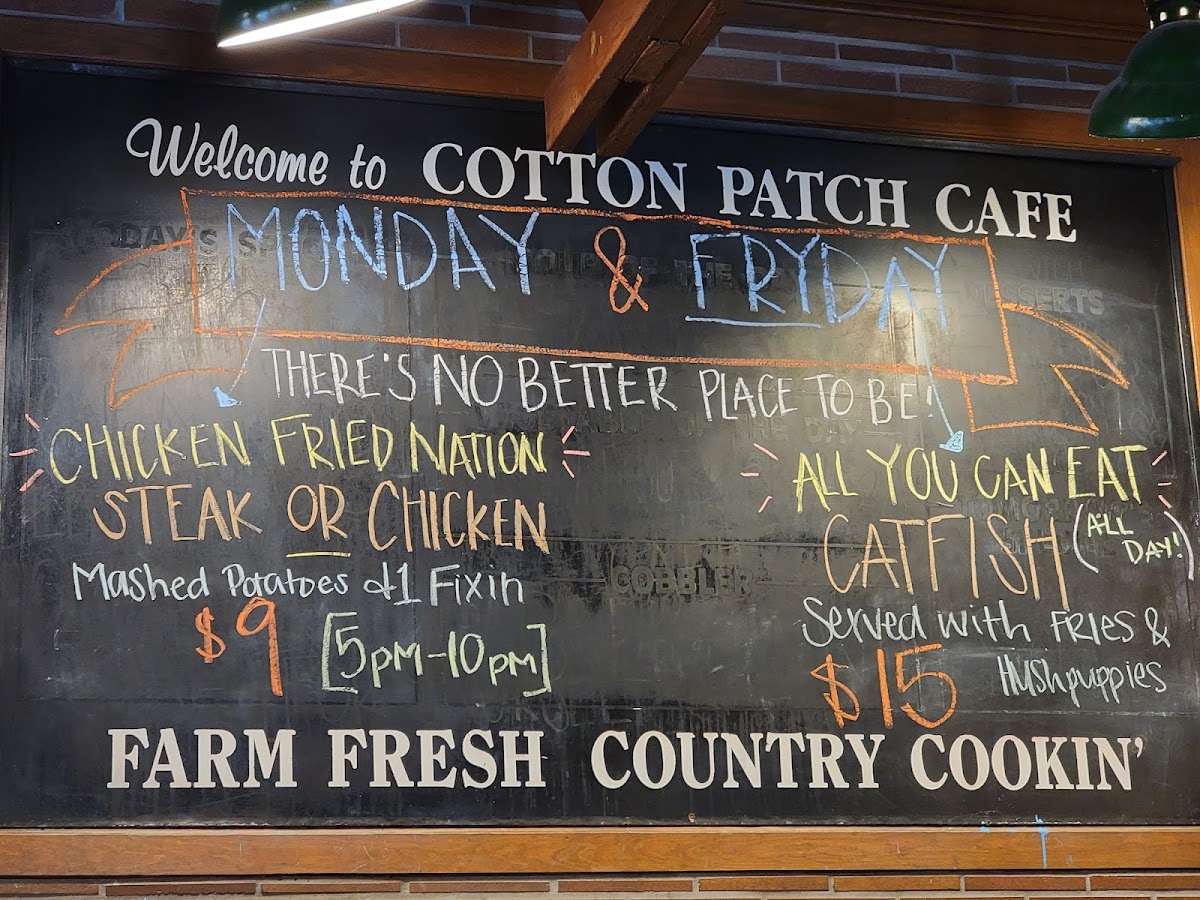 Welcome to COTTON PATCH CAFE
MONDAY & FRYDAY
THERE'S NO BETTER PLACE TO BE!
CHICKEN FRIED NATION
STEAK OR CHICKEN
Mashed Potatoes & 1 Fixin
$9 [5pm-10pm]
ALL YOU CAN EAT
CATFISH (ALL DAY!)
Served with FRIES &
Hushpuppies
$15
COBBLER
DESSERTS
FARM FRESH COUNTRY COOKIN'